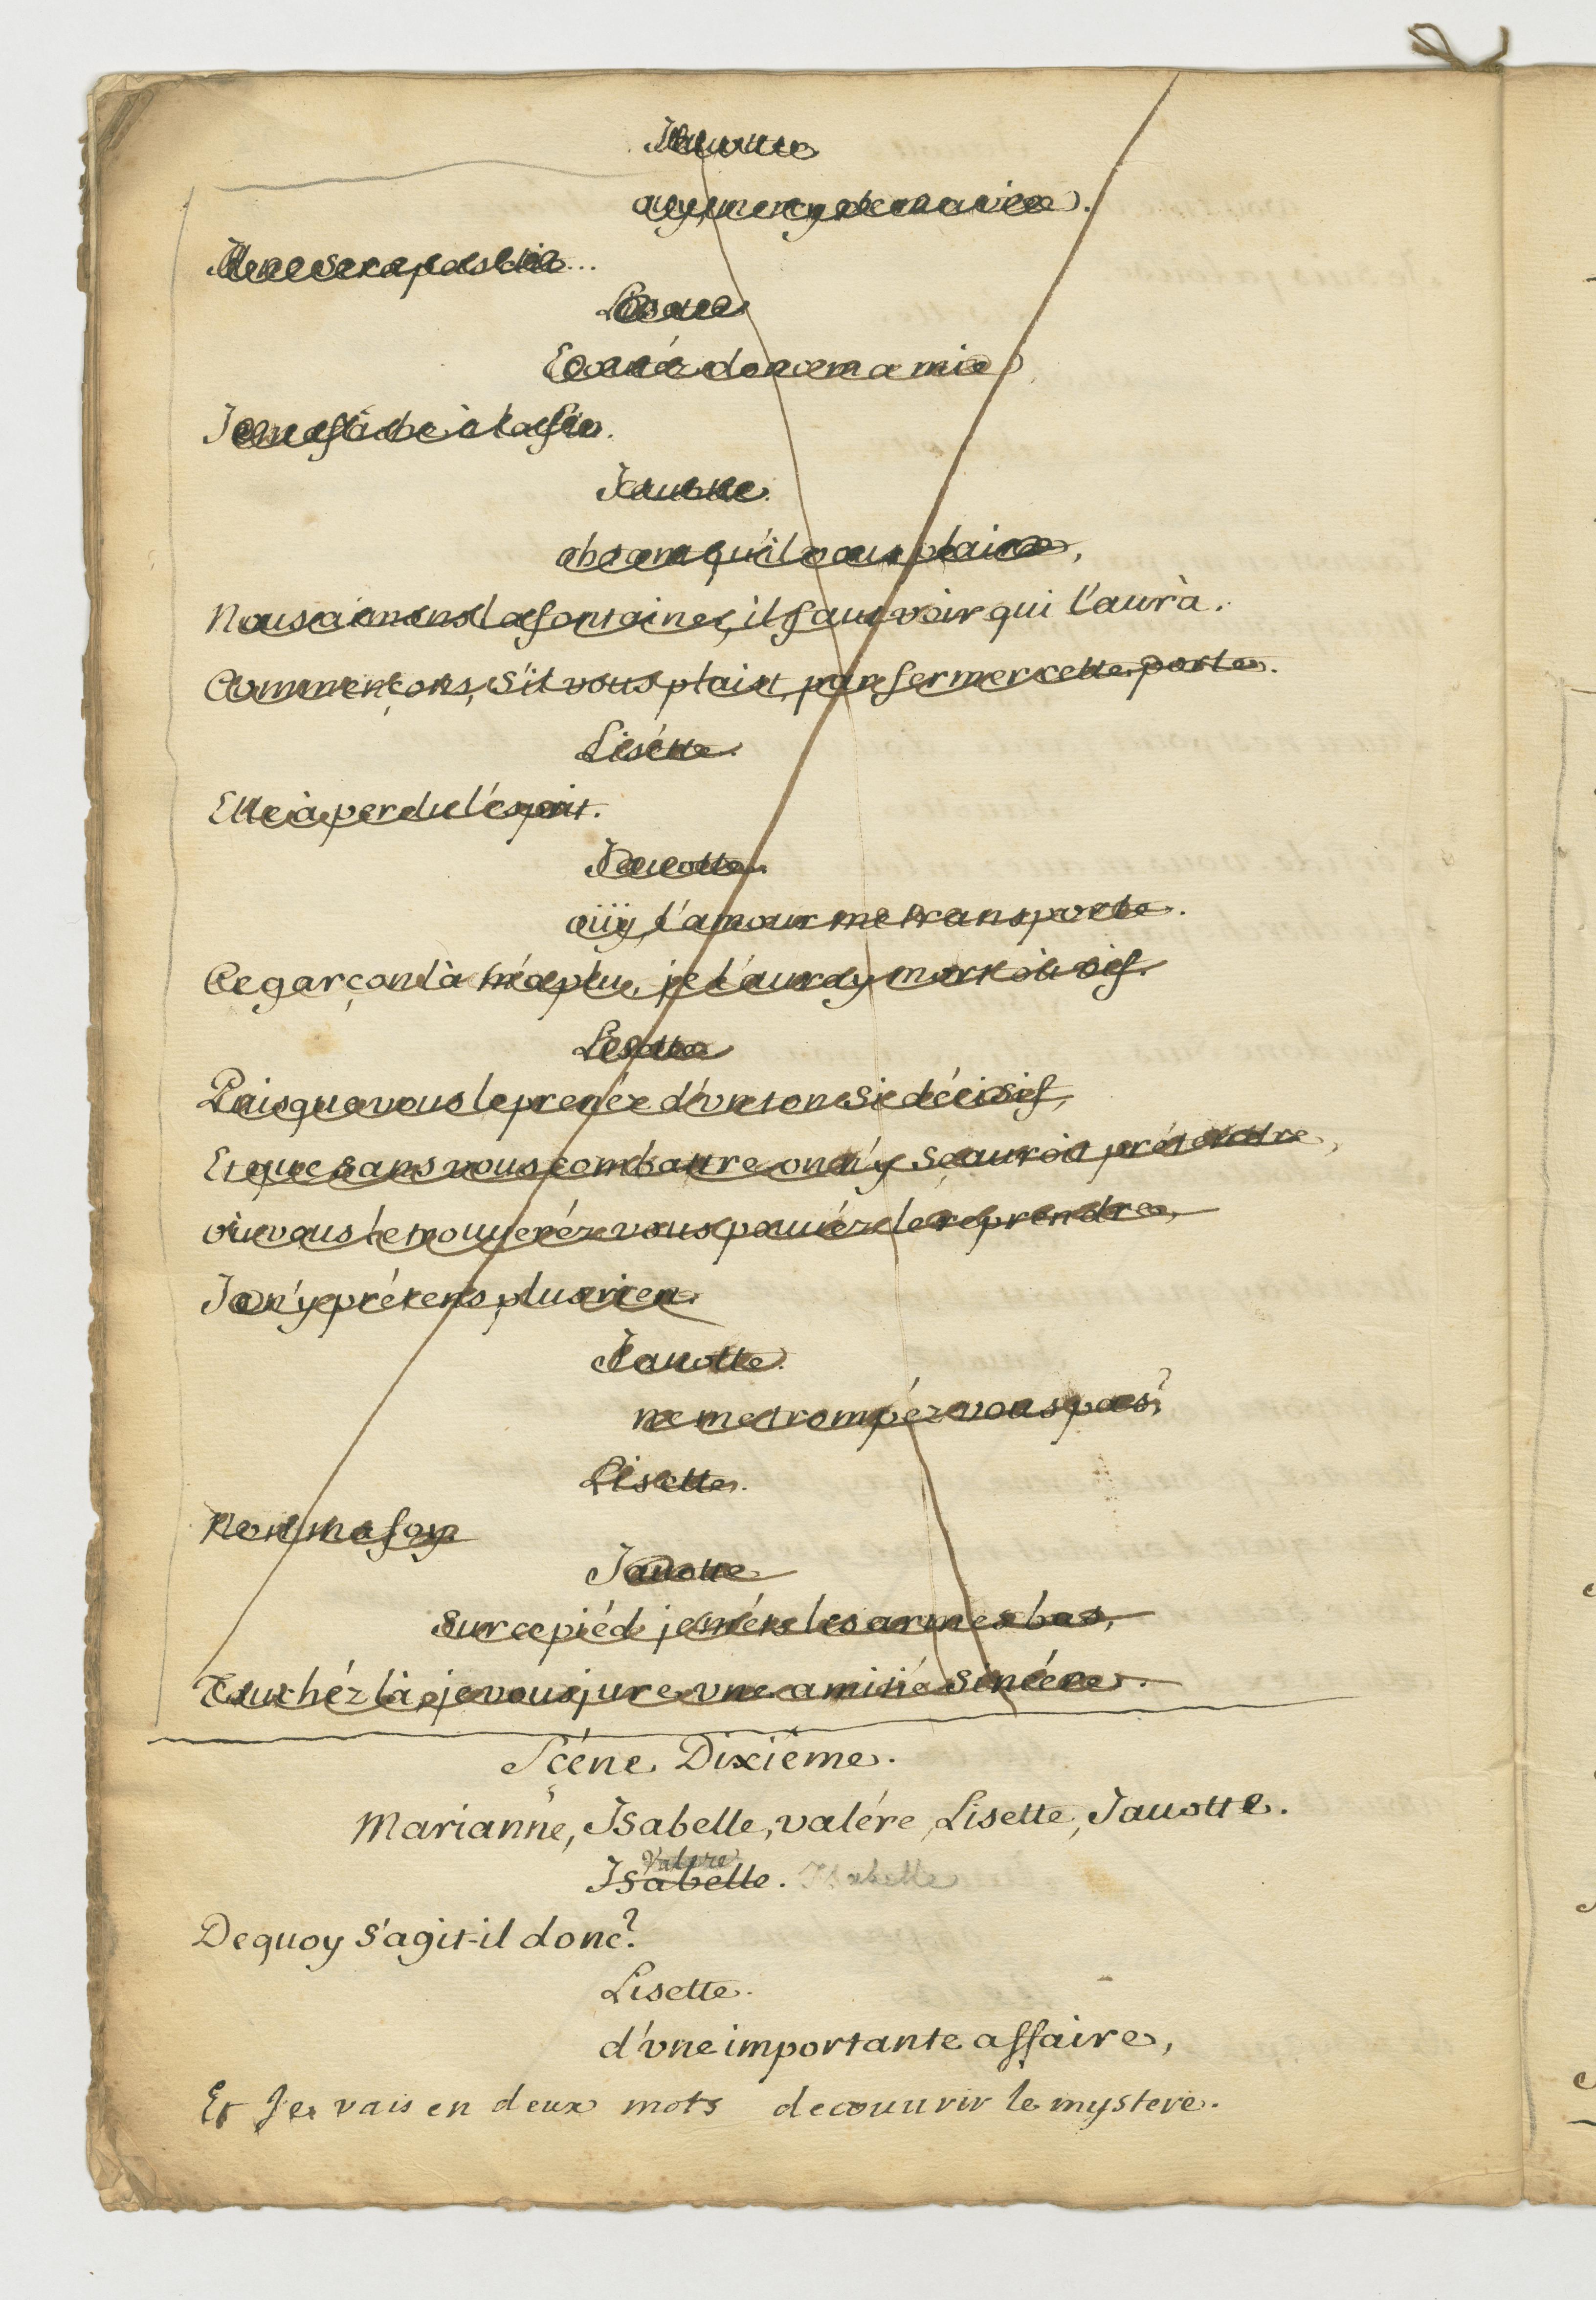 Jauotte
ouy, mercy de ma vie.
Il ne sera pas dit...
Lisette
Ecoutéz donc ma mie
Je me fâche à la fin.
Jauotte.
ah
Nous aimons lafontaine, il faut voir qui l'aurà.
Commençons, s'il vous plaist, par fermer cette porte.
Lisétte.
Elle à perdu l'esprit.
Jauotte.
oüy, l'amour me transporte.
Ce garçon là m'a plu, je l'auray mort ou vif.
Lisette
Puisque vous le prenéz d'vn ton si décisif,
Et que sans vous combattre on n'y sçauroit prétendre,
où vous le trouueréz vous pouuéz le reprendre,
Je n'y prétens plus rien.
Jauotte.
ne me trompéz vous pas?
Lisette.
Non ma foy.
Jauotte
Sur ce piéd je méts les armes bas,
Touchéz là, je vous jure vne amitié sincére.
Scéne Dixiéme.
Marianne, Isabelle, valére, Lisette, Jauotte.
Valere
Isabelle. Isabelle
De quoy s'agit-il donc?
Lisette.
d'vne importante affaire,
Et Je vais en deux mots decouurir le mystere.